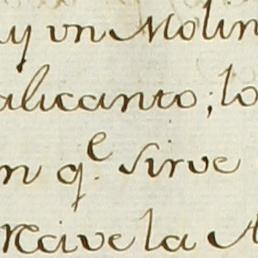 ay un Molin
alicanto; lo
n q.e sirve
Recive la A